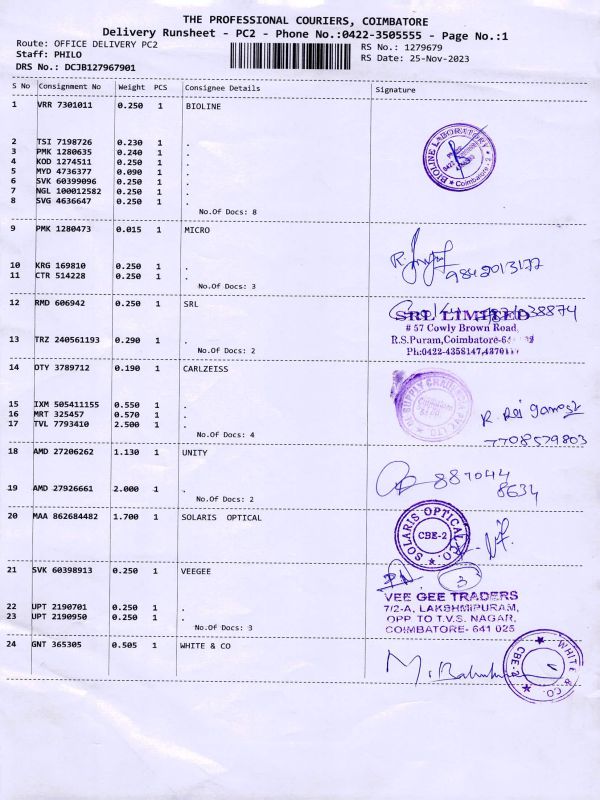 THE PROFESSIONAL COURIERS, COIMBATORE
Delivery Runsheet - PC2 - Phone No.:0422-3505555 - Page No.:1
Route: OFFICE DELIVERY PC2 RS No.: 1279679
Staff: PHILO RS Date: 25-Nov-2023
DRS No.: DCJB127967901
S No Consignment No Weight PCS Consignee Details Signature
1 VRR 7301011 0.250 1 BIOLINE
2 TSI 7198726 0.230 1 .
3 PMK 1280635 0.240 1 .
4 KOD 1274511 0.250 1 .
5 MYD 4736377 0.090 1 .
6 SVK 60399096 0.250 1 .
7 NGL 100012582 0.250 1 .
8 SVG 4636647 0.250 1 .
No.Of Docs: 8
BIOLINE LABORATORY
* Coimbatore - 2 *
9 PMK 1280473 0.015 1 MICRO
10 KRG 169810 0.250 1 .
11 CTR 514228 0.250 1 .
No.Of Docs: 3
9842013177
12 RMD 606942 0.250 1 SRL
SRL LIMITED
# 57 Cowly Brown Road,
13 TRZ 240561193 0.290 1 . R.S.Puram,Coimbatore-
No.Of Docs: 2 Ph:0422-4358147,
14 OTY 3789712 0.190 1 CARLZEISS
15 IXM 505411155 0.550 1 .
16 MRT 325457 0.570 1 .
17 TVL 7793410 2.500 1 .
No.Of Docs: 4
7708579803
18 AMD 27206262 1.130 1 UNITY
887044
8634
19 AMD 27926661 2.000 1 .
No.Of Docs: 2
20 MAA 862684482 1.700 1 SOLARIS OPTICAL
SOLARIS OPTICAL CO.
CBE-2
21 SVK 60398913 0.250 1 VEEGEE
3
VEE GEE TRADERS
22 UPT 2190701 0.250 1 . 7/2-A, LAKSHMIPURAM,
23 UPT 2190950 0.250 1 . OPP. TO T.V.S. NAGAR,
No.Of Docs: 3 COIMBATORE- 641 025
24 GNT 365305 0.505 1 WHITE & CO
WHITE & CO.
CBE-2